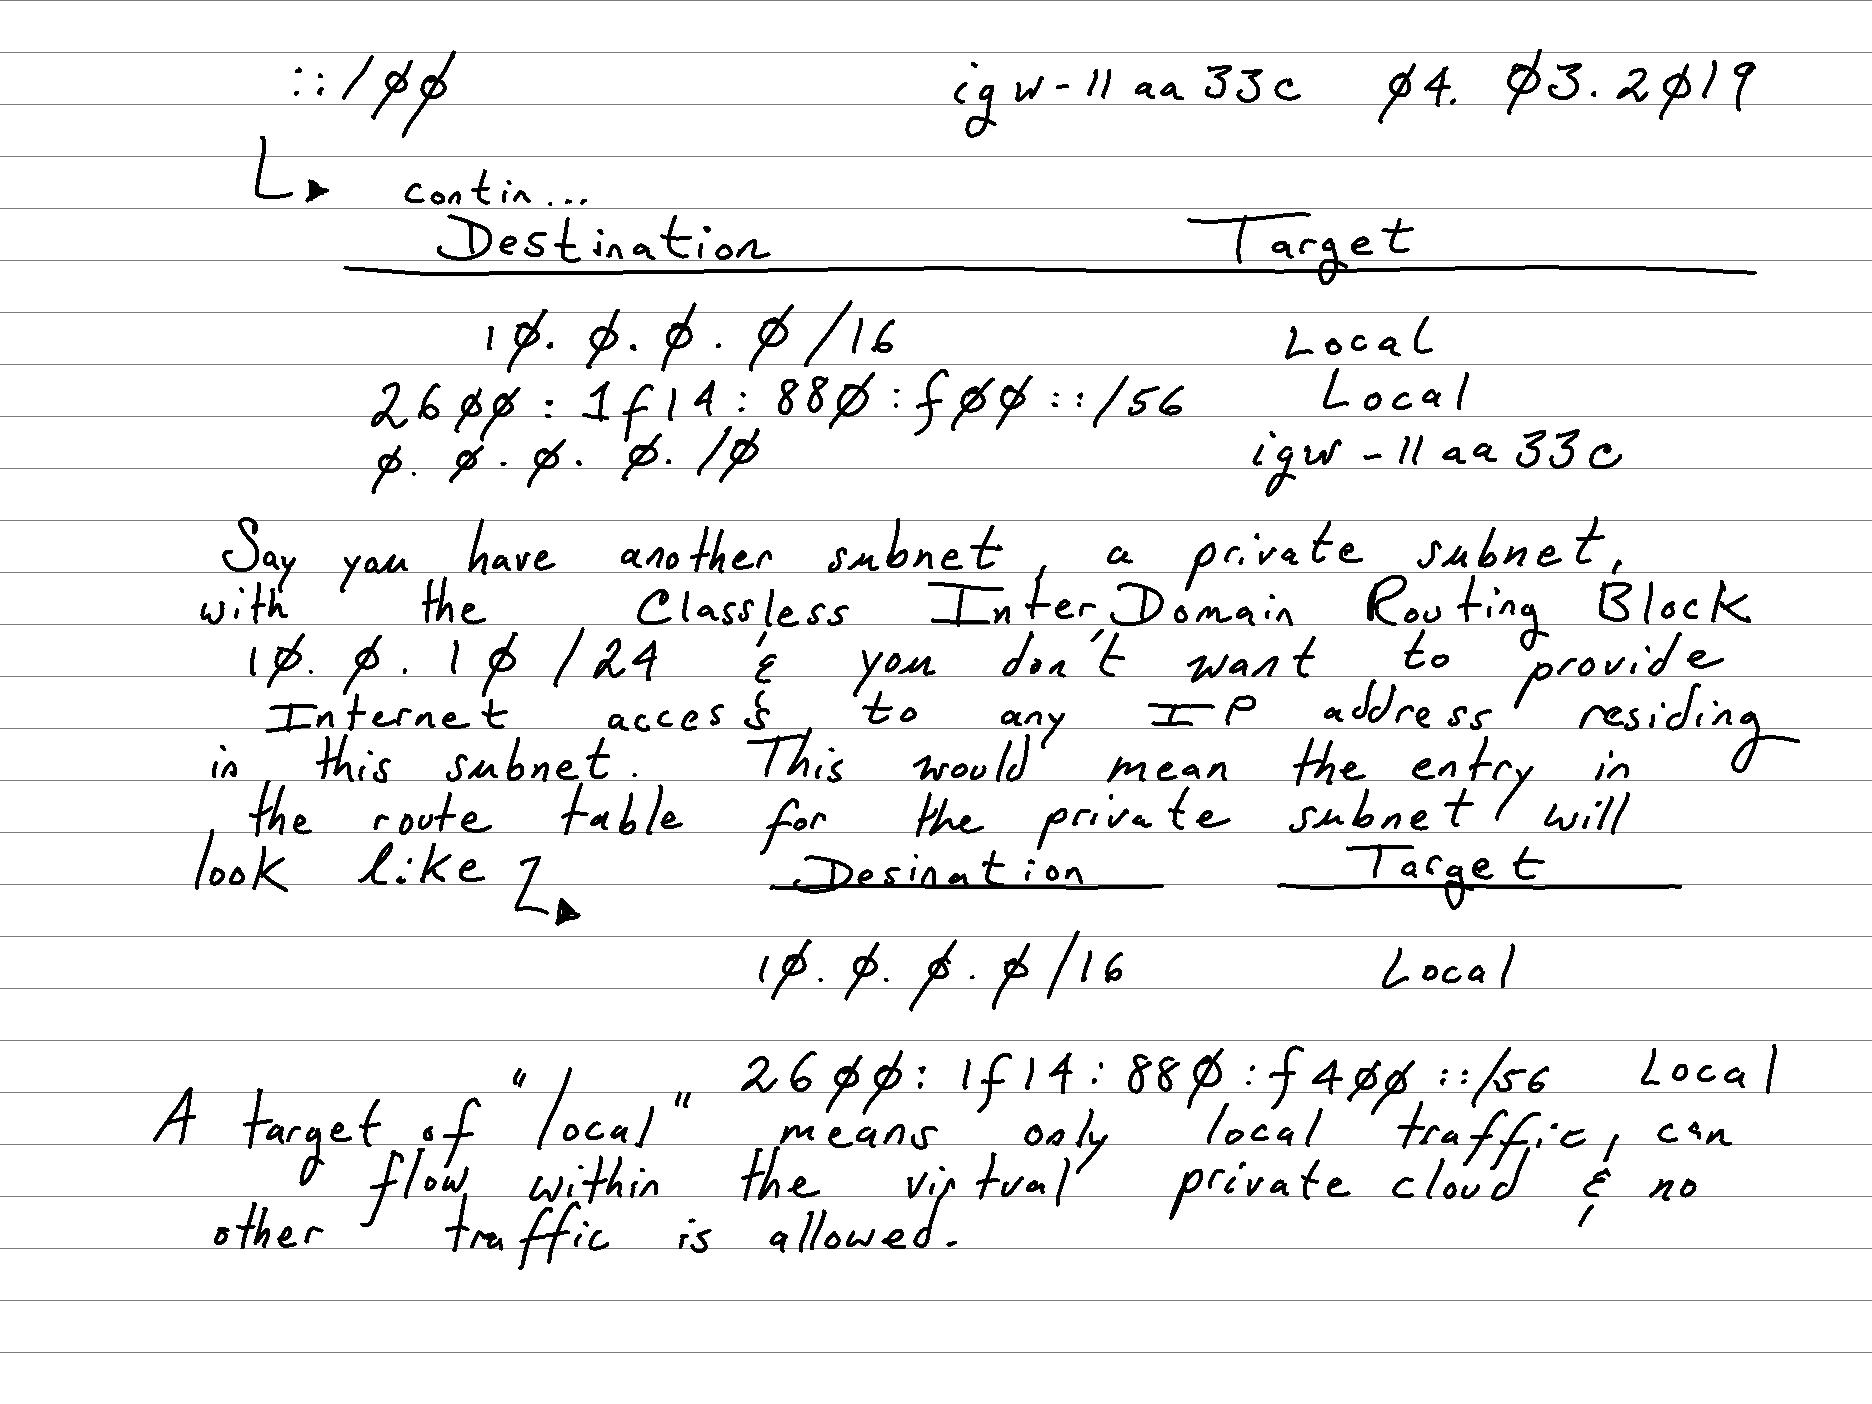 ::/00 igw-11aa33c 04. 03. 2019
contin...
Destination Target
10. 0. 0. 0/16 Local
2600:1f14:880:f00::/56 Local
0. 0. 0. 0. /0 igw-11aa33c
Say you have another subnet, a private subnet,
with the Classless InterDomain Routing Block
10. 0. 10/24 & you don't want to provide
Internet access to any IP address residing
in this subnet. This would mean the entry in
the route table for the private subnet will
look like Desination Target
10. 0. 0. 0/16 Local
2600:1f14:880:f400::/56 Local
A target of "local" means only local traffic, can
flow within the virtual private cloud & no
other traffic is allowed.